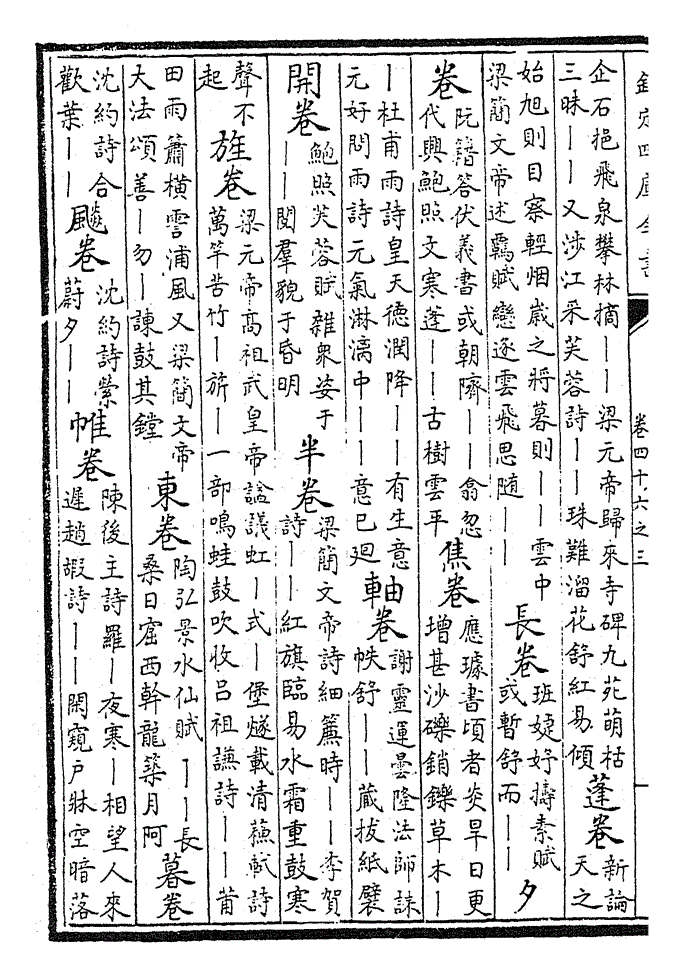 欽定四庫全書
卷四十六之三
企石挹飛泉攀林摘——梁元帝歸來寺碑九苑萌枯
三昧——又涉江采芙蓉詩——珠難溜花舒紅易傾
蓬卷
新論
天之
始旭則目察輕烟歲之將暮則——雲中
梁簡文帝述羈賦戀逐雲飛思随——
長卷
班婕妤擣素賦
或暫舒而——
夕
卷
阮籍答伏義書或朝隮——翕忽
代興鮑照文寒蓬——古樹雲平
焦卷
應璩書頃者炎旱日更
增甚沙礫銷鑠草木—
—杜甫雨詩皇天德潤降——有生意
元好問雨詩元氣淋漓中——意已廻
軸卷
謝靈運曇隆法師誄
帙舒——藏拔紙襞
開卷
鮑照芙蓉賦雜衆姿于
——閱羣貌于昏明
半卷
梁簡文帝詩細簾時——李賀
詩——紅旗臨易水霜重鼓寒
聲不
起
旌卷
梁元帝高祖武皇帝謚議虹—式—堡燧載清蘓軾詩
萬竿苦竹—旂——一部鳴蛙鼓吹收吕祖謙詩——莆
田雨簫橫雲浦風又梁簡文帝
大法頌善—勿—諫鼓其鏜
東卷
陶弘景水仙賦——長
桑日窟西斡龍築月阿
暮卷
沈約詩合
歡葉——
飈卷
沈約詩縈
蔚夕——
帷卷
陳後主詩羅—夜寒—相望人來
遲趙嘏詩——閑窺戶牀空暗落